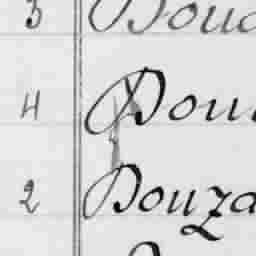 3 Douc
4 Dou
2 Douza